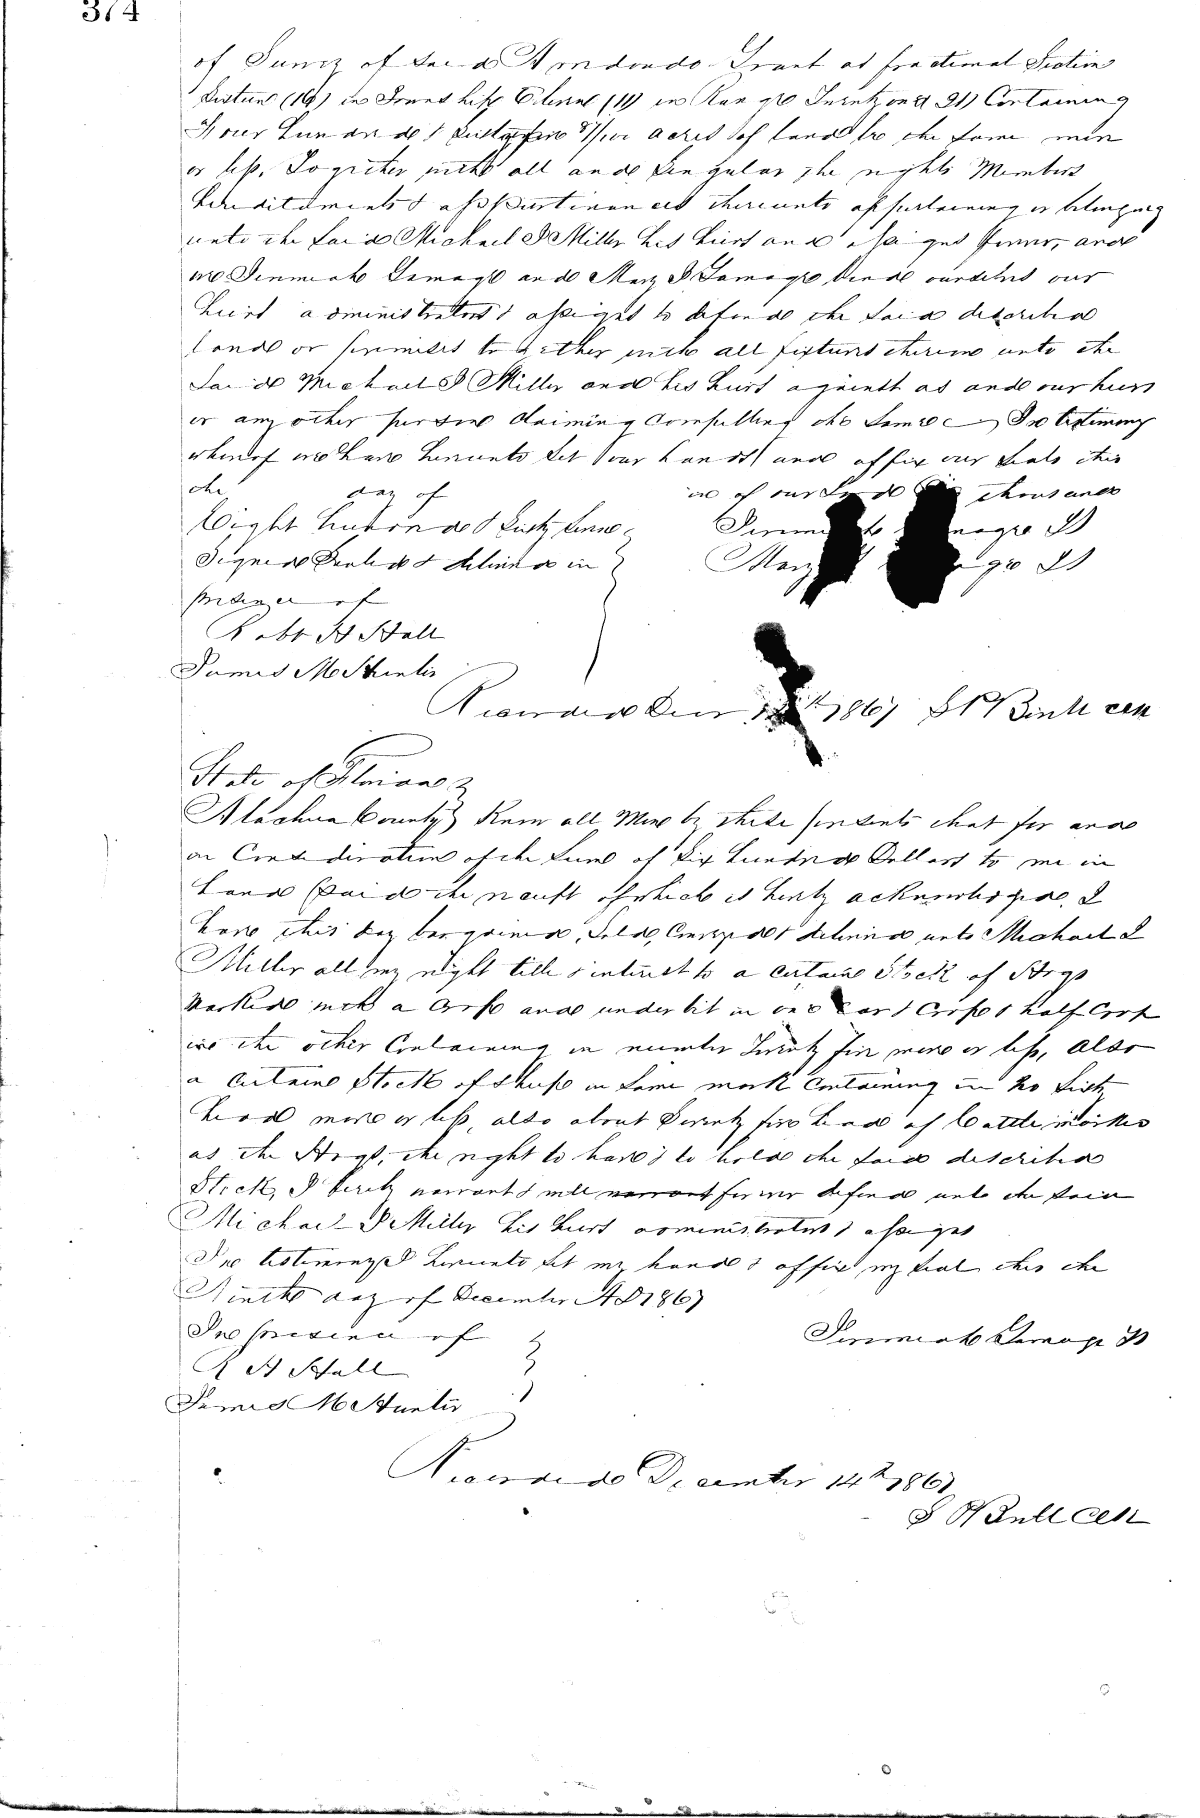 374
of Survey of said Arredondo Grant as fractional Section
Sixteen (16) in Township Eleven (11) in Range Twenty one (21) Containing
Four hundred & Sixty five 87/100 acres of land be the same more
or less, Together with all and Singular the rights Members
hereditaments & appurtinances thereunto appertaining or belonging
unto the said Michael J Miller his heirs and assigns forever, and
we Jeremiah Gamage and Mary J Gamage bind ourselves our
heirs administrators & assigns to defend the said described
land or premises together with all fixtures therein unto the
Said Michael J Miller and his heirs against us and our heirs
or any other person claiming the same In testimony
whereof we have hereunto set our hands and affix our seals this
the day of of our Lord thousand
Eight hundred & Sixty
Signed Sealed & delivered in
Mary
presence of
Robt H Hall
James M Hunter
Recorded Decr 1867 Clk
State of Florida
Alachua County Know all Men by these presents that for and
in Consideration of the Sum of Six hundred Dollars to me in
hand Paid the receipt of which is hereby acknowledged, I
have this day bargained, Sold, Conveyed & delivered unto Michael J
Miller all my right title & interest to a certain Stock of Hogs
Marked with a Crop and under bit in one Ear & Crop & half Crop
in the other Containing in number Twenty five more or less, also
a certain Stock of Sheep in same mark Containing in No Sixty
head more or less, also about Seventy five head of Cattle marked
as the Hogs, the right to have & to hold the said described
Stock, I hereby warrant & will warrant forever defend unto the said
Michael J Miller his heirs administrators & assigns
In testimony I hereunto set my hand & affix my seal this the
Ninth day of December AD 1867
In presence of Jeremiah Gamage
R H Hall
James M Hunter
Recorded December 14th 1867
Clk